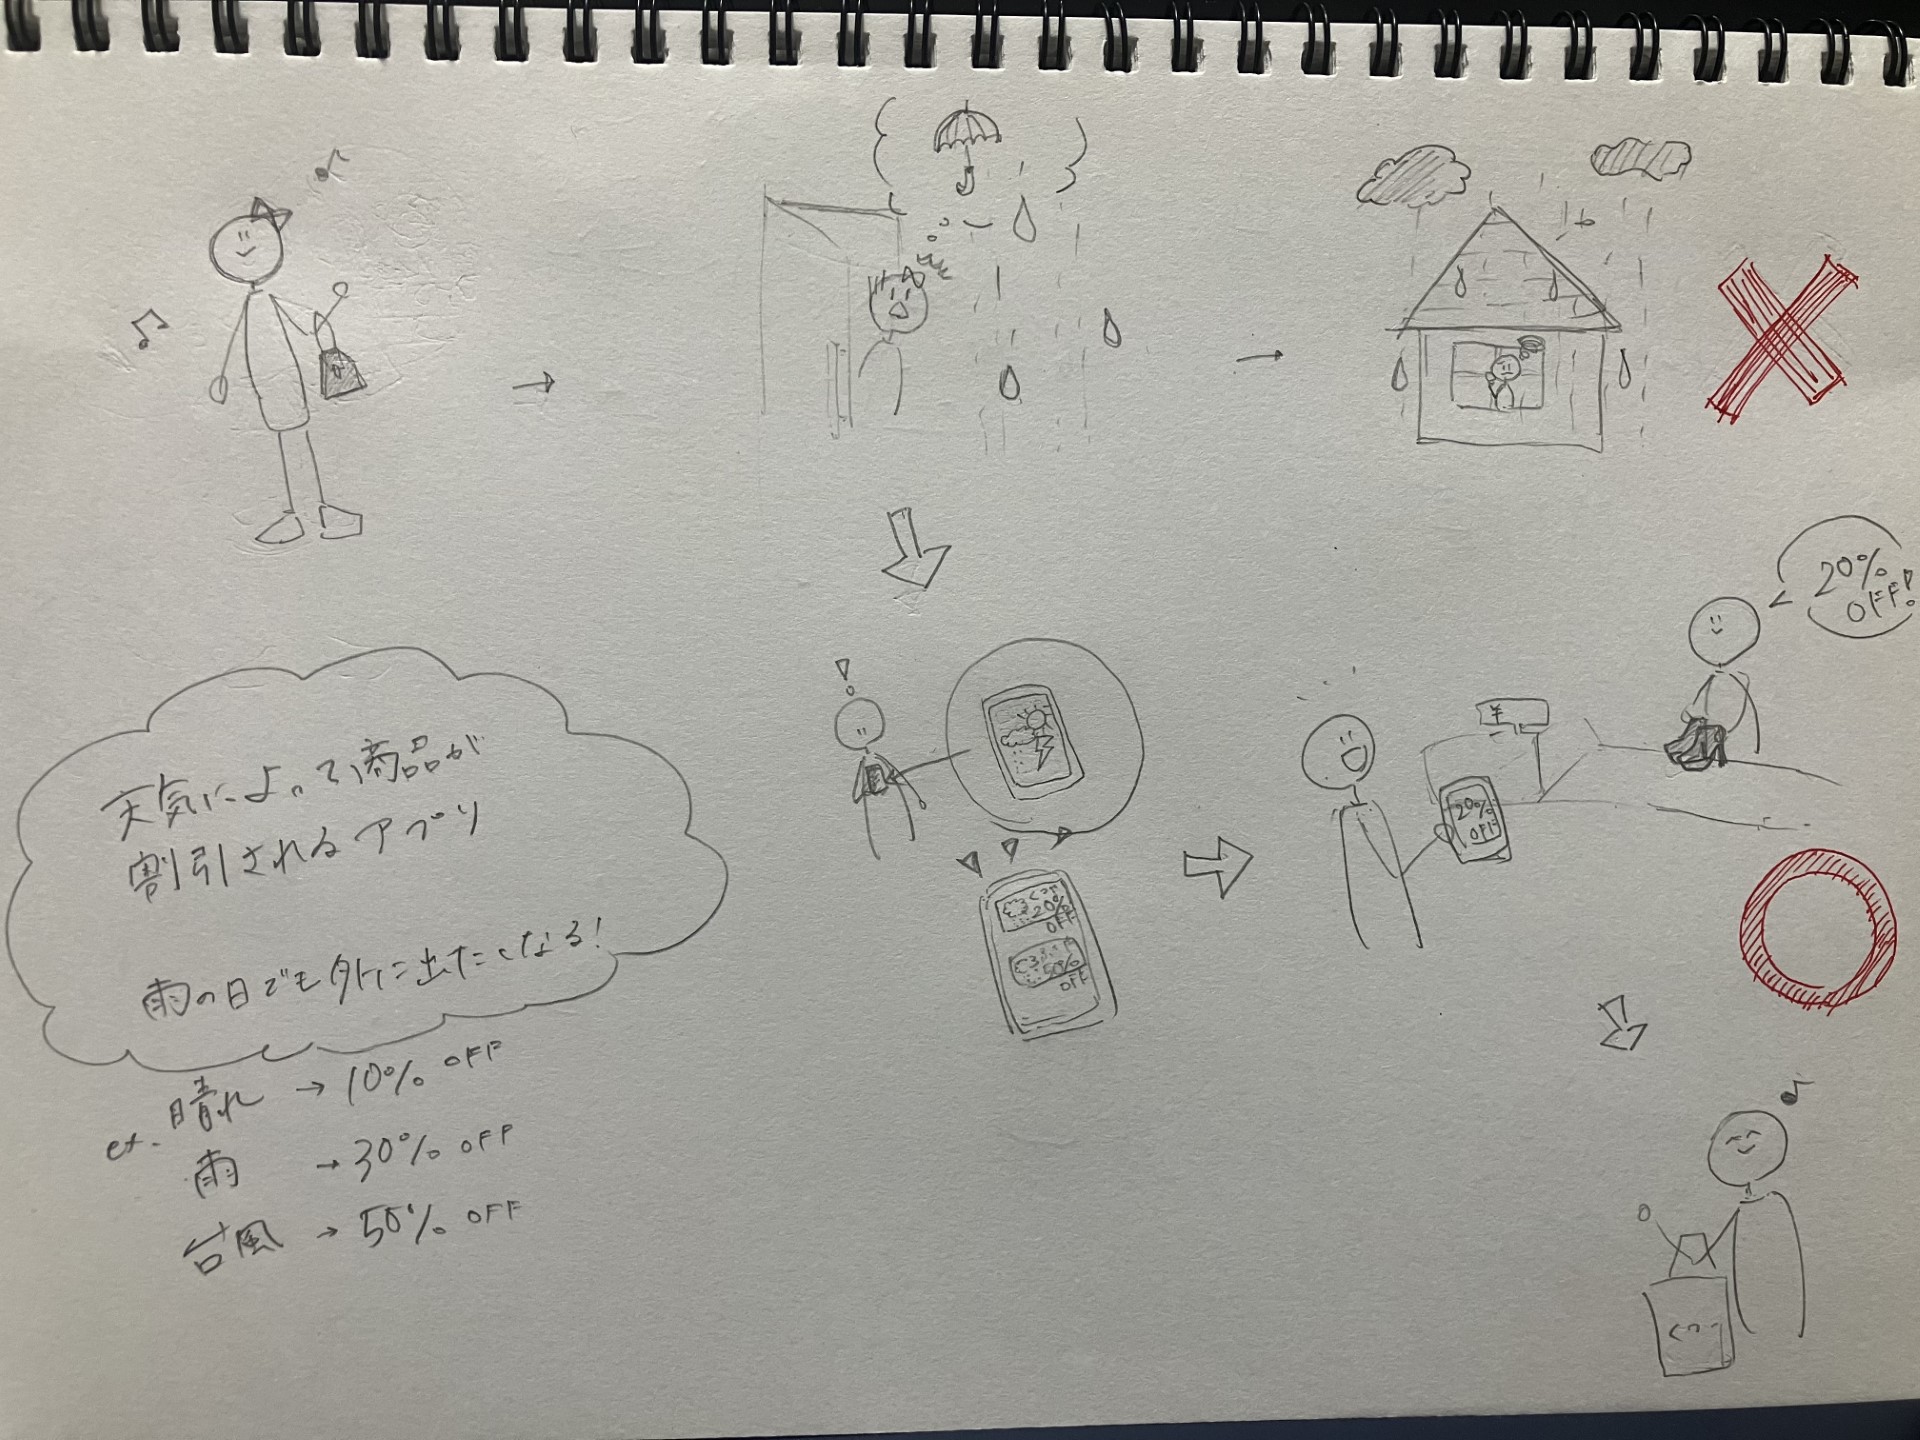 天気によって商品が
割引されるアプリ
雨の日でも外に出たくなる!
ex. 晴れ → 10% OFF
雨 → 30% OFF
台風 → 50% OFF
!
20%
OFF
50%
OFF
¥
20%
OFF
20%
OFF!
くつ